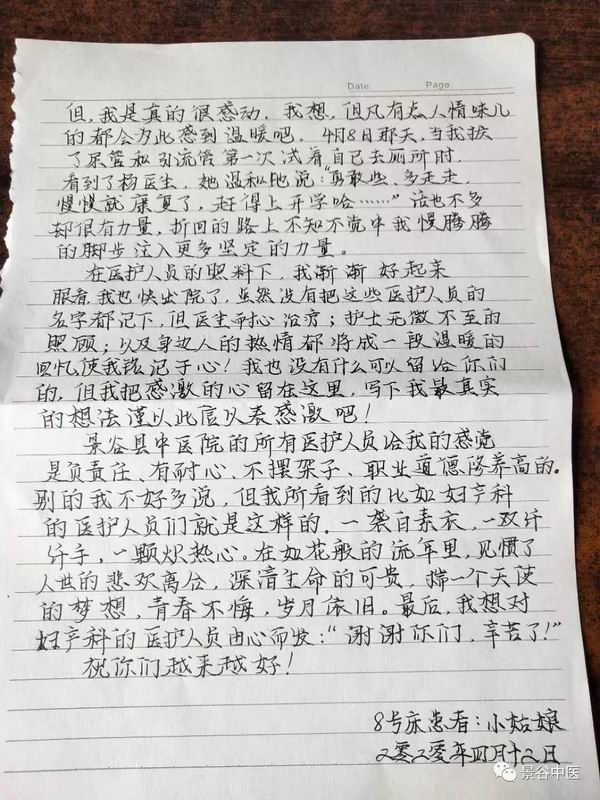 Date Page
但,我是真的很感动,我想,但凡有点人情味儿
的都会为此感到温暖吧。4月8日那天,当我拔
了尿管和引流管第一次试着自己去厕所时,
看到了杨医生,她温和地说:“勇敢些、多走走,
慢慢就康复了,赶得上开学哈……”话也不多
却很有力量,折回的路上不知不觉中我慢腾腾
的脚步注入更多坚定的力量。
在医护人员的照料下,我渐渐好起来
眼看我也快出院了,虽然没有把这些医护人员的
名字都记下,但医生耐心治疗;护士无微不至的
照顾;以及身边人的热情都将成一段温暖的
回忆使我铭记于心!我也没有什么可以留给你们
的,但我把感激的心留在这里,写下我最真实
的想法谨以此信以表感激吧!
景谷县中医院的所有医护人员给我的感觉
是负责任、有耐心、不摆架子、职业道德修养高的。
别的我不好多说,但我所看到的比如妇产科
的医护人员们就是这样的。一袭白素衣,一双纤
纤手,一颗炽热心。在如花般的流年里,见惯了
人世的悲欢离合,深清生命的可贵,揣一个天使
的梦想,青春不悔,岁月依旧。最后,我想对
妇产科的医护人员由心而发:“谢谢你们,辛苦了!”
祝你们越来越好!
8号床患者:小姑娘
二零二零年四月十二日
景谷中医